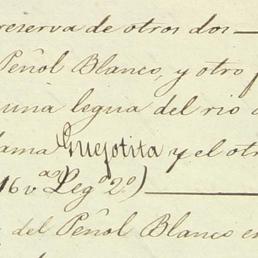 reserva de otros dos
Peñol Blanco, y otro
una legua del rio
llama Guejotita y el otr
16 vª Legº 2º)
del Peñol Blanco en